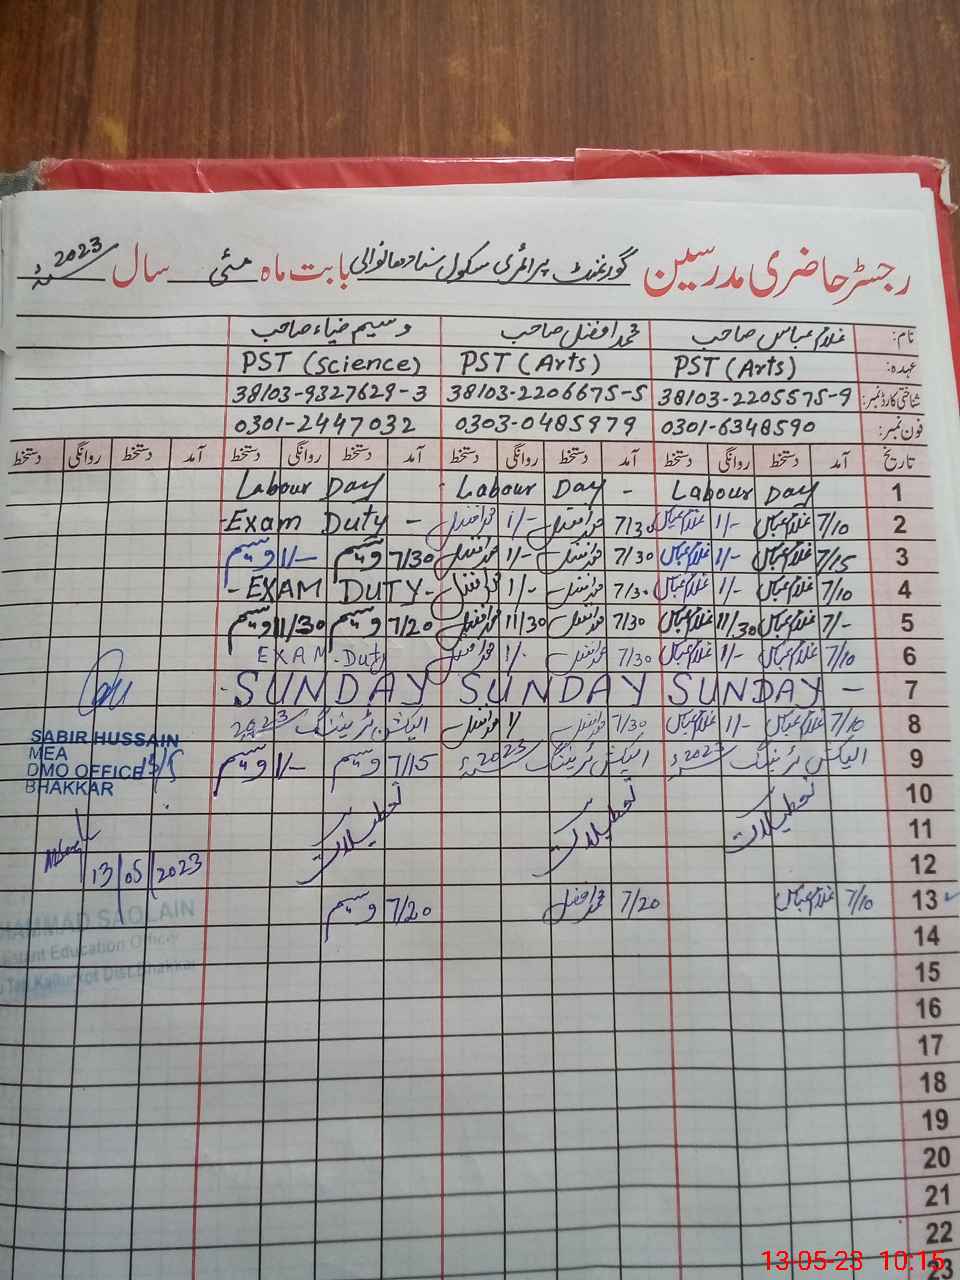 رجسٹر حاضری مدرسین گورنمنٹ پرائمری سکول سنادھانوالی بابت ماہ مئی سال 2023ء
نام: غلام عباس صاحب محمد افضل صاحب وسیم ضیاء صاحب
عہدہ: PST (Arts) PST (Arts) PST (Science)
شناختی کارڈ نمبر: 38103-2205575-9 38103-2206675-5 38103-9327629-3
فون نمبر: 0301-6348590 0303-0485979 0301-2447032
تاریخ آمد دستخط روانگی دستخط آمد دستخط روانگی دستخط آمد دستخط روانگی دستخط آمد دستخط روانگی دستخط
1 Labour Day Labour Day - Labour Day
2 7/10 غلام عباس 1/- غلام عباس 7/30 محمد افضل 1/- محمد افضل - Exam Duty -
3 7/15 غلام عباس 1/- غلام عباس 7/30 محمد افضل 1/- محمد افضل 7/30 وسیم 1/- وسیم
4 7/10 غلام عباس 1/- غلام عباس 7/30 محمد افضل 1/- محمد افضل - EXAM DUTY -
5 7/- غلام عباس 11/30 غلام عباس 7/30 محمد افضل 11/30 محمد افضل 7/20 وسیم 11/30 وسیم
6 7/10 غلام عباس 1/- غلام عباس 7/30 محمد افضل 1/- محمد افضل EXAM - Duty
7 - SUNDAY SUNDAY SUNDAY -
8 7/10 غلام عباس 1/- غلام عباس 7/30 محمد افضل 1/ محمد افضل الیکشن ٹریننگ 2023
9 الیکشن ٹریننگ 2023ء الیکشن ٹریننگ 2023ء 7/15 وسیم 1/- وسیم
10
11 تعطیلات تعطیلات تعطیلات
12
13 7/10 غلام عباس 7/20 محمد افضل 7/20 وسیم
14
15
16
17
18
19
20
21
22
23
SABIR HUSSAIN
MEA
DMO OFFICE
BHAKKAR
15/5
13/05/2023
HAMMAD SAQLAIN
istant Education Officer
Kallurkot Dist.Bhakkar
13-05-23 10:15